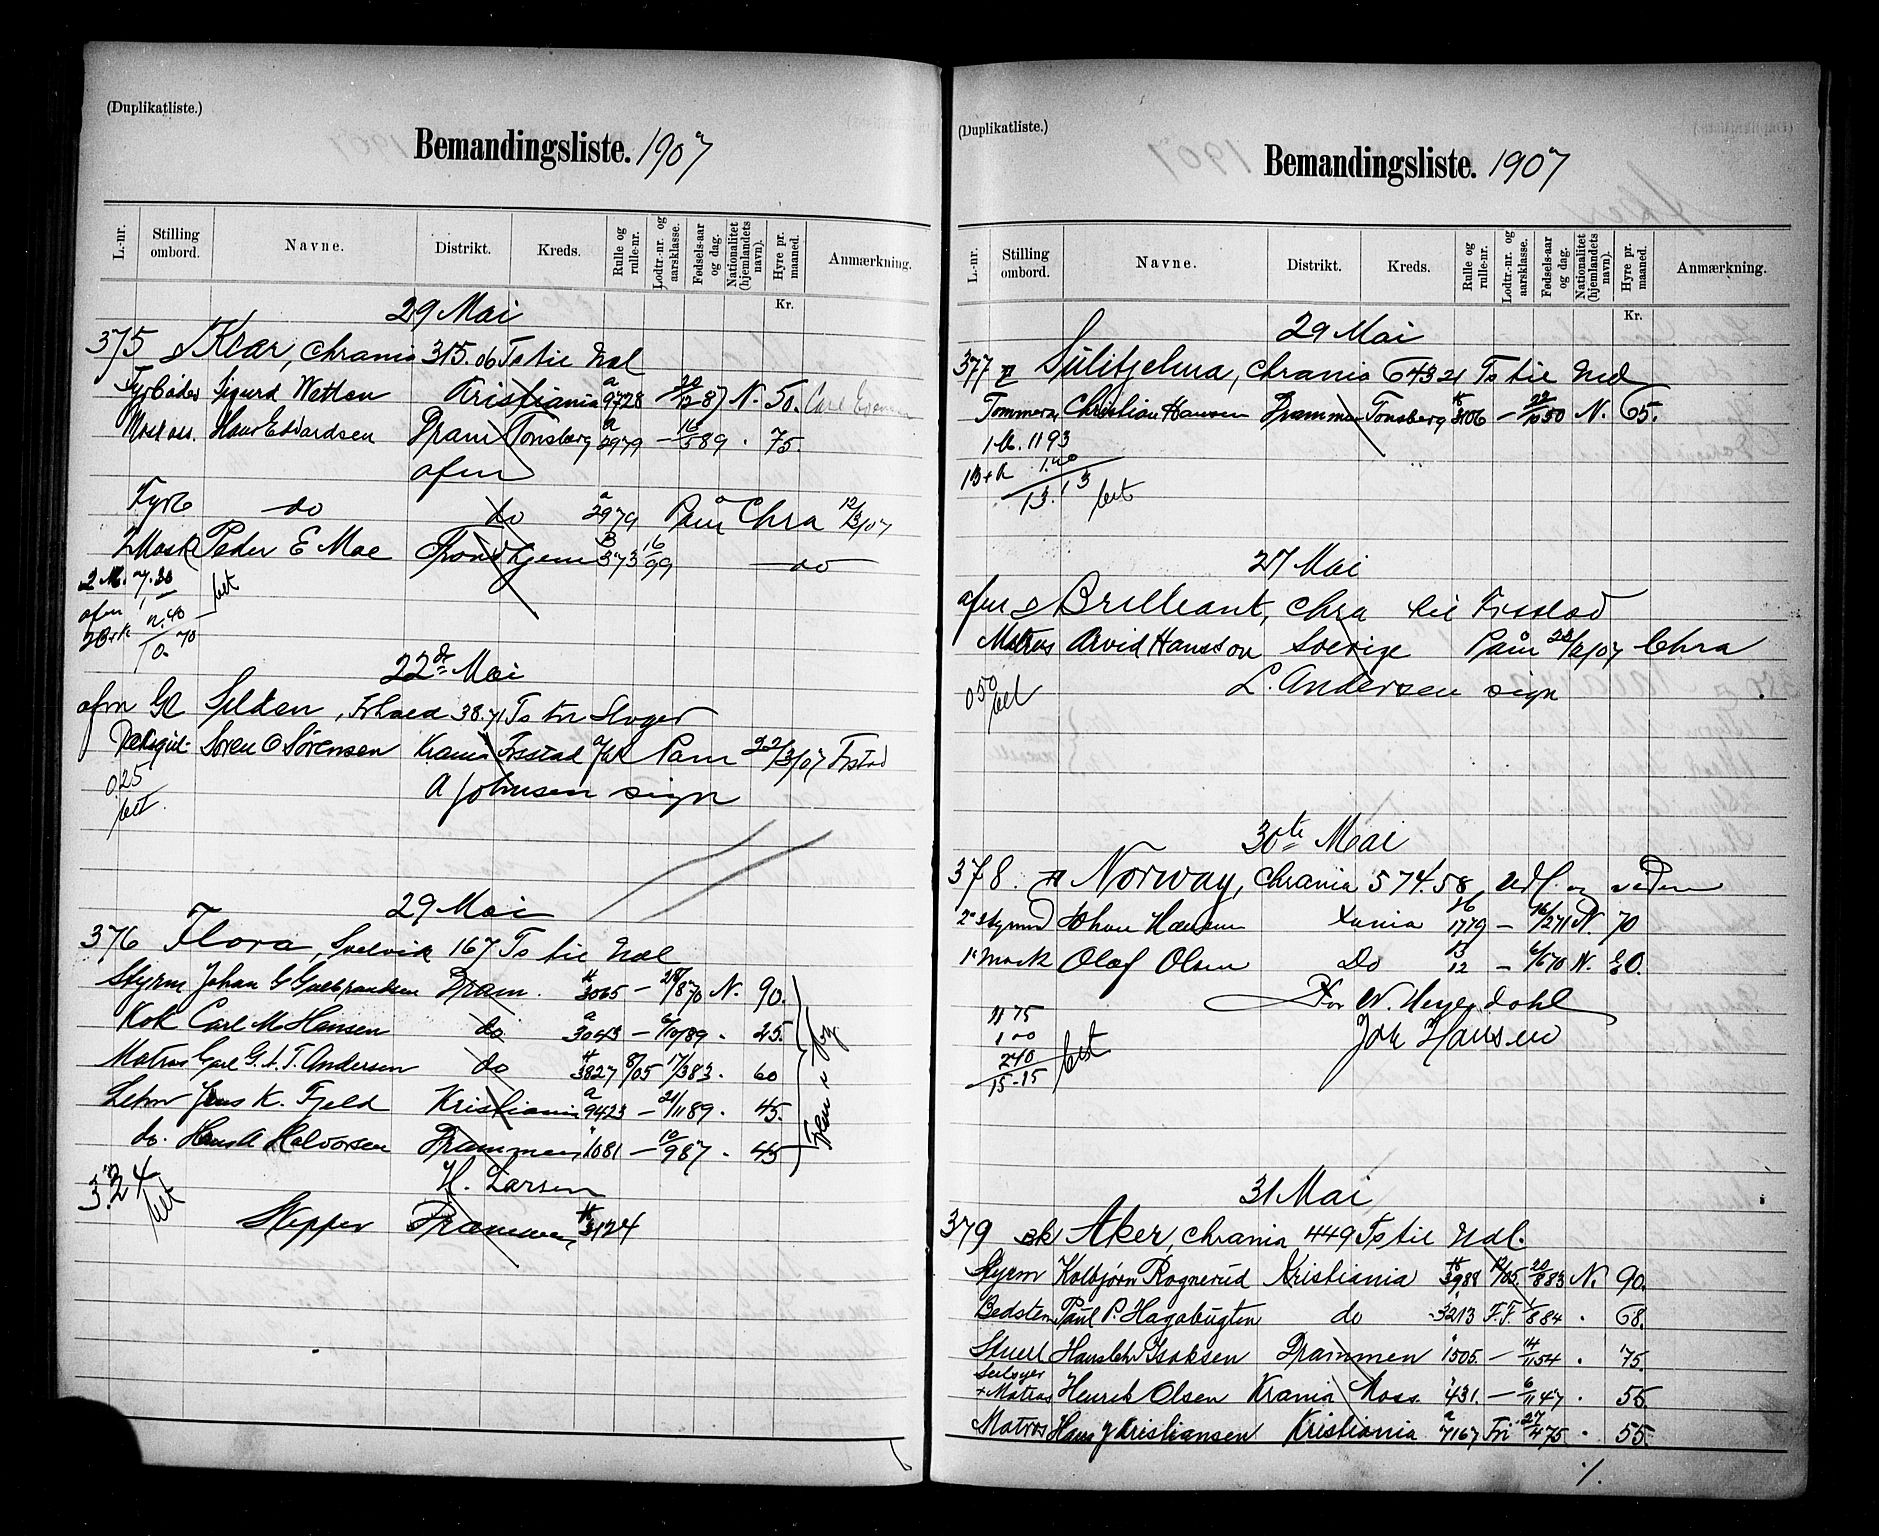 (Duplikatliste.)
Bemandingsliste. 1907
L.-nr. Stilling ombord. Navne. Distrikt. Kreds. Rulle og rulle-nr. Lodtr.-nr. og aarsklasse. Fødsels-aar og dag. Nationalitet (hjemlandets navn). Hyre pr. maaned. Anmærkning.
Kr.
29 Mai
375 Klar, Chrania 315.06 Ts til Udl
Fyrbøder Sigurd Wetten Kristiania a 9728 — 20/12 87 N. 50.
Hans Edvardsen Dram Tønsberg a 2979 — 16/5 89 . 75.
afm
Fyrb do do a 2979 Paam Chra 12/3/07
2 Mask Peder E Moe Trondhjem B 373 16/99 — do
2 M. 7.30
afm
10.70
bet
22de Mai
afm Gl Selden, Frhald 38.71 Ts
Søren O Sørensen Krania Frstad Pam 22/3/07 Frstad
025 A Johnsen sign
bet
29 Mai
376 Flora, Svelvik 167 Ts til Udl
Styrm Johan G Gulbrandsen Dram. 3065 — 28/8 70 N. 90.
Kok Carl M Hansen do a 3043 — 6/10 89 . 25.
Matros Carl G. A. T. Andersen do 3827 8/05 17/3 83 . 60
Letm Jens K. Fjeld Kristiania a 9423 — 21/11 89 . 45.
do. Hans A Halvorsen Drammen 1081 — 10/9 87 . 45
3.24 H. Larsen
bet
Skipper Drammen 3124
(Duplikatliste.)
Bemandingsliste. 1907
L.-nr. Stilling ombord. Navne. Distrikt. Kreds. Rulle og rulle-nr. Lodtr.-nr. og aarsklasse. Fødsels-aar og dag. Nationalitet (hjemlandets navn). Hyre pr. maaned. Anmærkning.
Kr.
29 Mai
377 Sulitjelma, Chrania 643 21 Ts til Udl
Tømmerm Christian Hansen Drammen Tønsberg 3106 — 22/10 50 N. 65.
1 M. 11 93
1.20
13.13
bet
27 Mai
afm Brilliant, Chra til Frstad
Matros Arvid Hansson Sverige Paam 28/2/07 Chra
050 L. Andersen sign
bet
30te Mai
378. Norway, Chrania 574.58 Udl.
2den Styrmd Johan Hansen Xania 1779 — 16/2 71 N. 70
1ste Mask Olaf Olsen Do 12 — 6/6 70 N. 80.
For W. Heyerdahl
Joh Hansen
11 75
1 00
240
15-15
bet
31 Mai
379 Aker, Chrania 449 Ts til Udl.
Styrm Kolbjørn Rognerud Kristiania 3988 12/05 20/8 83 N. 90.
Bedstem Paul P. Hagabugten do 3213 F.F. 1/8 84 . 68.
Stuert Hans Isaksen Drammen 1505. — 14/11 54 . 75.
Seilsyer
+ Matros Henrik Olsen Krania Moss 431. — 6/11 47 . 55
Matros Hans J Kristiansen Kristiania a 7167 Fri 27/4 75 . 55.
./.